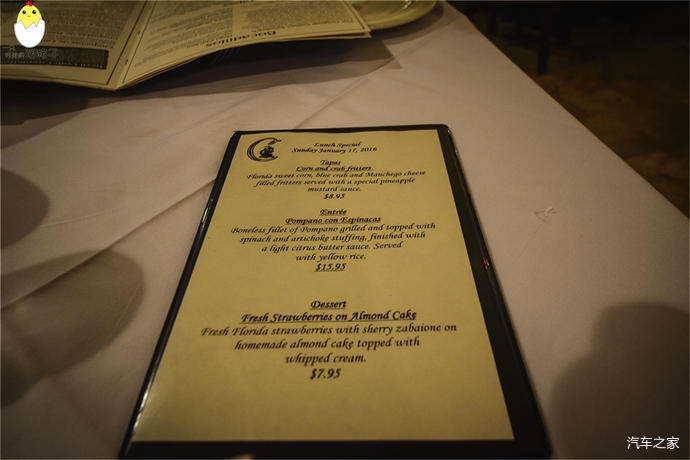 Bocadillos
Lunch Special
Sunday January 17, 2016
Tapas
Corn and crab fritters
Florida sweet corn, blue crab and Manchego cheese
filled fritters served with a special pineapple
mustard sauce.
$8.95
Entrée
Pompano con Espinacas
Boneless fillet of Pompano grilled and topped with
spinach and artichoke stuffing, finished with
a light citrus butter sauce. Served
with yellow rice.
$15.95
Dessert
Fresh Strawberries on Almond Cake
Fresh Florida strawberries with sherry zabaione on
homemade almond cake topped with
whipped cream.
$7.95
汽车之家